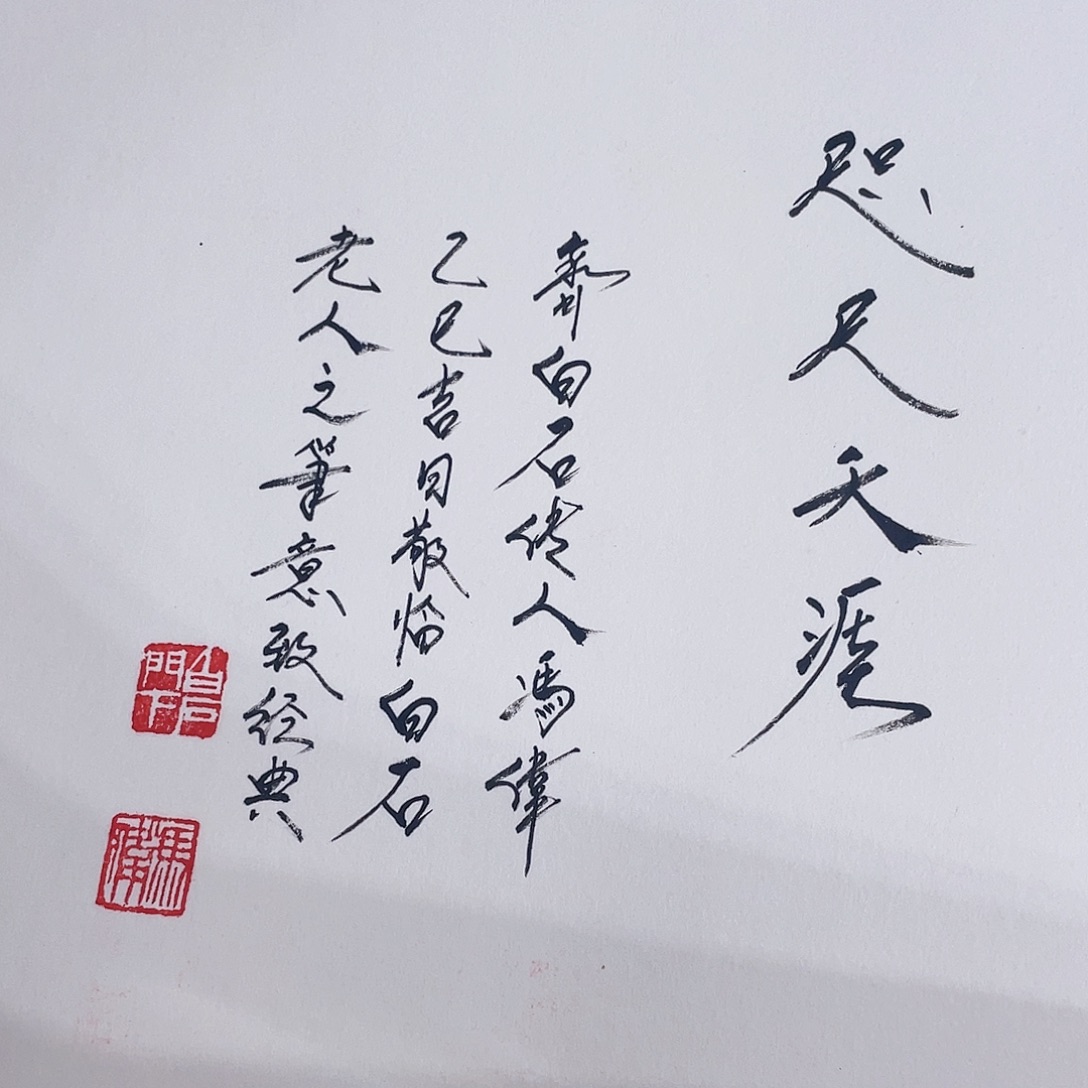 咫尺天涯
齊白石傳人馮偉
乙巳吉日敬臨白石
老人之筆意致經典
白石門下